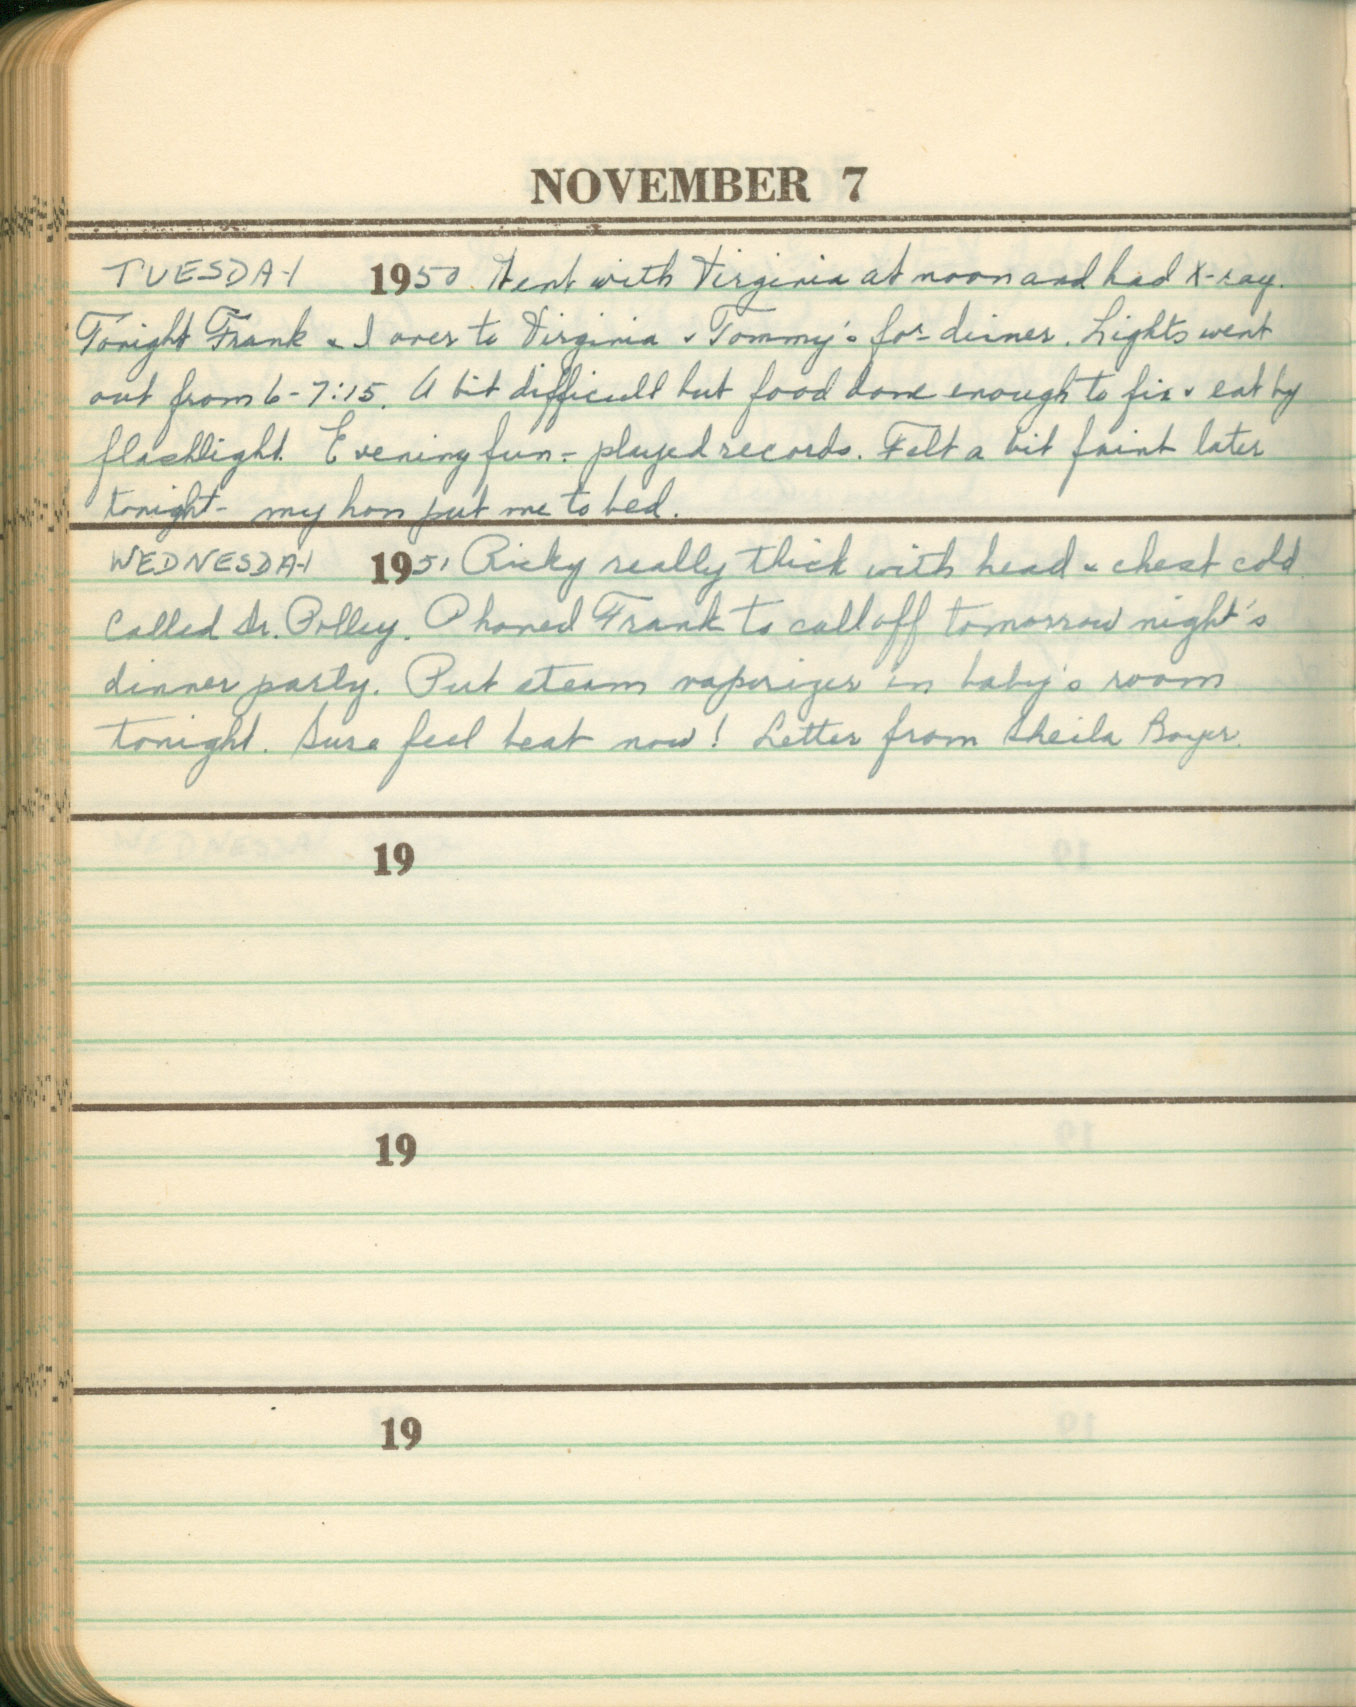 NOVEMBER 7
TUESDAY 1950 Went with Virginia at noon and had X-ray.
Tonight Frank & I over to Virginia & Tommy's for dinner. Lights went
out from 6-7:15. A bit difficult but food done enough to fix & eat by
flashlight. Evening fun - played records. Felt a bit faint later
tonight - my hon put me to bed.
WEDNESDAY 1951 Ricky really thick with head & chest cold
Called Dr. Polley. Phoned Frank to call off tomorrow night's
dinner party. Put steam vaporizer in baby's room
tonight. Sure feel beat now! Letter from Sheila Boyer.
19
19
19